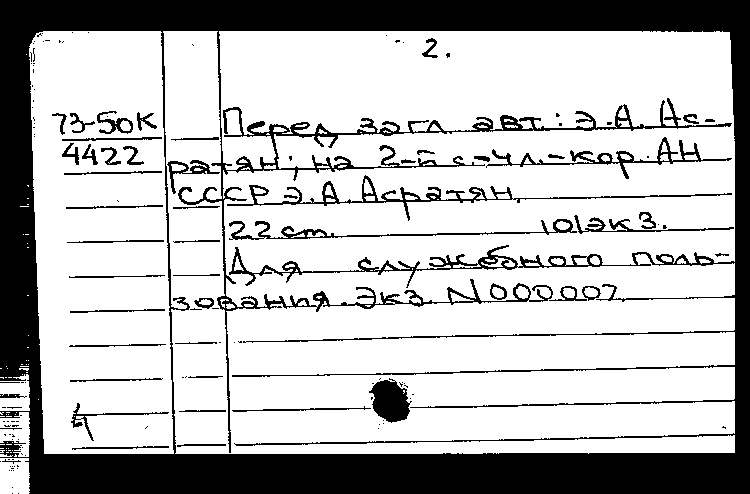 2.
73-50К Перед загл. авт.: Э.А. Ас-
4422 ратян; на 2-й с.-чл.-кор. АН
СССР Э.А. Асратян.
22 cm. 101экз.
Для служебного поль-
зования. Экз. N000007.